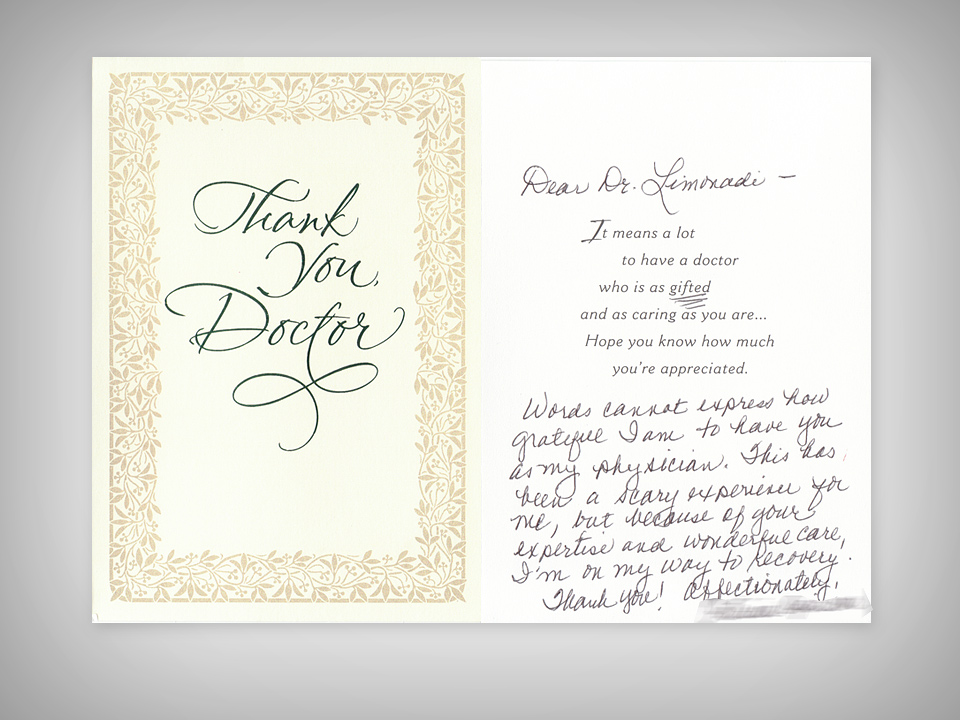 Thank
You,
Doctor
Dear Dr. Limonadi —
It means a lot
to have a doctor
who is as gifted
and as caring as you are...
Hope you know how much
you're appreciated.
Words cannot express how
grateful I am to have you
as my physician. This has
been a scary experience for
me, but because of your
expertise and wonderful care,
I'm on my way to recovery.
Thank you! Affectionately,